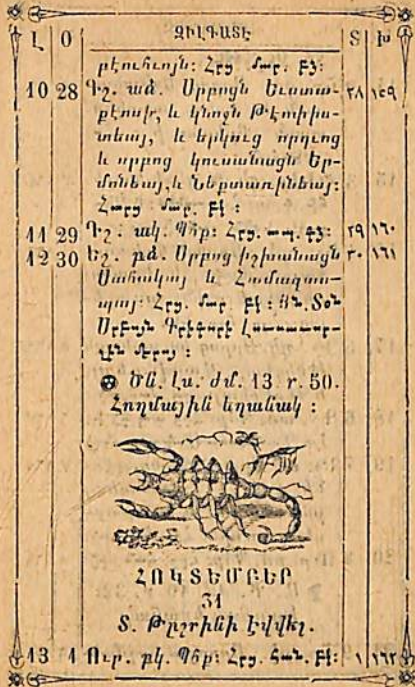 Լ Օ ԶԻԼԳԱՏԷ Տ Խ
բէուհւոյն: Հրց մար. բՀ:
10 28 Դշ. ած. Սրբոյն Եւստա- ٢٨ ١٥٩
բէոսի, և կնոջն Թ՛էոփիս-
տեայ, և երկուց որդւոց
և սրբոց կուսանացն Եր-
մոնեայ, և Նեկտառինեայ:
Հարց մար. բկ :
11 29 Հշ. ակ. Պհք: Հրց. առ. բՀ: ٢٩ ١٦٠
12 30 Եշ. բձ. Սրբոց իշխանացն ٣٠ ١٦١
Սահակայ և Համազաս-
պայ: Հրց. մար բկ:
Սրբոյն Գրիգորի Լուսաւոր-
չին մերոյ :
Ծն. Լս. ժմ. 13 ր. 50.
Հողմային եղանակ :
ՀՈԿՏԵՄԲԵՐ
31
Տ. Թըշրինի էվվէլ.
13 1 Ուր. բկ. Պհք: Հրց. Համ. բկ: ١ ١٦٢